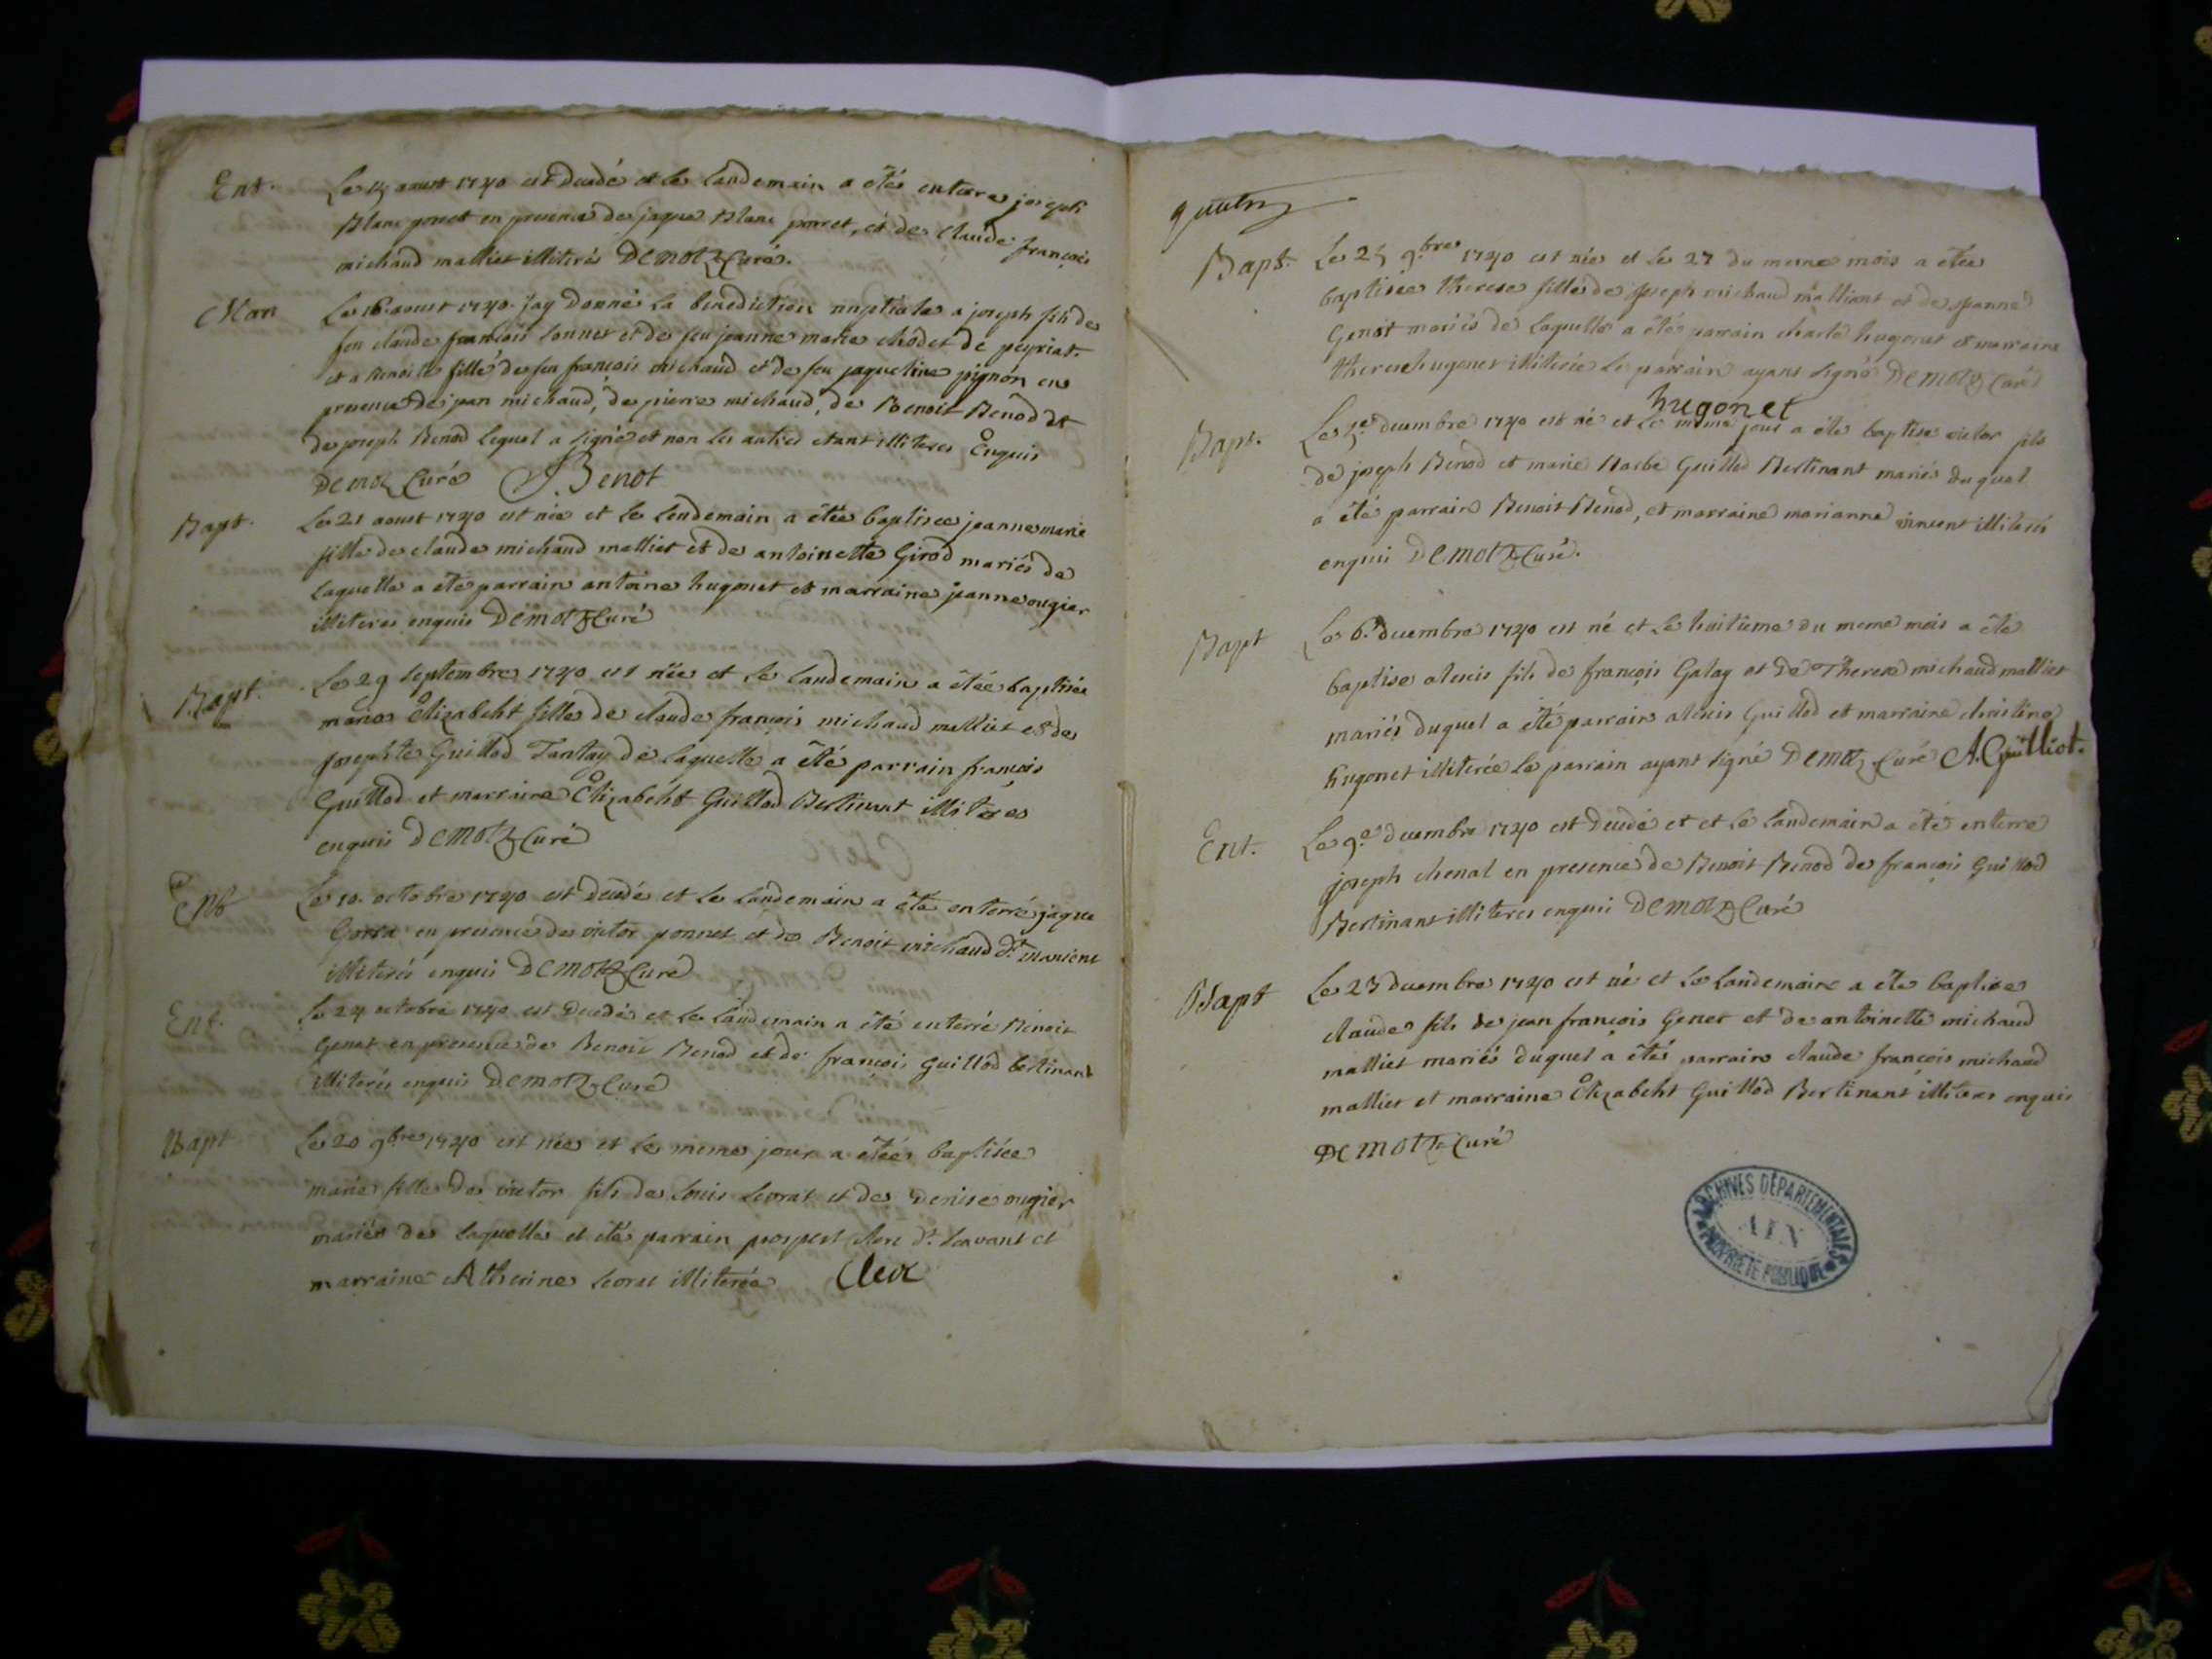 Ent. Le 15 aoust 1740 est decedé et le landemain a étés enterre joseph
Blanc ponet en presence de jaque Blanc ponnet, et de claude françois
michaud malliet illiterés Demotz Curé.
Mar Le 16 aoust 1740. jay donné la benediction nuptiale a joseph fils de
feu claude françois sonnet et de feu jeanne marie chodet de peyriat.
et a benoite fille de feu françois michaud et de feu jaqueline pignon en
presence de jean michaud, de pierre michaud, de Benoit Benod et
de joseph Benod lequel a signé et non les autres etant illiteres Enquis
Demotz Curé J Benot
Bapt. Le 21 aoust 1740 est née et le lendemain a étée baptisee jeanne marie
fille de claude michaud malliet et de antoinette Girod mariés de
laquelle a été parrain antoine hugonet et marraine jeanne ougier
illiteres enquis Demotz Curé
Bapt. Le 29 septembre 1740 est née et le landemain a étée baptisée
marie Elizabeht fille de claude françois michaud malliet et de
josephte Guillod Tantay de laquelle a été parrain françois
Guillod et marraine Elizabeht Guillod Bertinant illiteres
enquis Demotz Curé
Ent Le 10. octobre 1740 est decedé et le landemain a été enterré jaque
Gorra en presence de victor ponnet et de Benoit michaud dt
illiterés enquis Demotz Curé
Ent. Le 24 octobre 1740 est decedé et le landemain a été enterré Benoit
Genet en presence de Benoit Benod et de françois Guillod bertinant
illiterés enquis Demotz Curé
Bapt Le 20 9bre 1740 est née et le meme jour a étée baptisée
marie fille de victor fils de louis levrat et de denise ougier
mariés de laquelle et été parrain prospert clerc dt. et
marraine Atherine levrat illiterée Clerc
Bapt. Le 25 9bre 1740 est née et le 27 du meme mois a étée
baptisée therese fille de joseph michaud malliant et de jeanne
Genot mariés de laquelle a été parrain charle hugonet et marraine
therese hugonet illiterée le parrain ayant signé Demotz Curé
hugonet
Bapt. Le 5e decembre 1740 est né et le meme jour a été baptise victor fils
de joseph Benod et marie Barbe Guillod Bertinant mariés duquel
a été parrain Benoit Benod, et marraine marianne vincent illiterés
enquis Demotz Curé.
Bapt Le 6e decembre 1740 est né et le huitieme du meme mois a été
baptise alexis fils de françois Galay et de Therese michaud malliet
mariés duquel a été parrain alexis Guillod et marraine christine
hugonet illiterée le parrain ayant signé Demotz Curé A. Guilliot.
Ent. Le 9e decembre 1740 est decedé et et le landemain a été enterre
joseph chenal en presence de Benoit Benod de françois Guillod
Bertinant illiteres enquis Demotz Curé
Bapt Le 23 decembre 1740 est né et le landemain a été baptise
claude fils de jean françois Genet et de antoinette michaud
malliet mariés duquel a étés parrain claude françois michaud
malliet et marraine Elizabeht Guillod Bertinant illiteres enquis
Demotz Curé
ARCHIVES DÉPARTEMENTALES
AIN
PROPRIÉTÉ PUBLIQUE